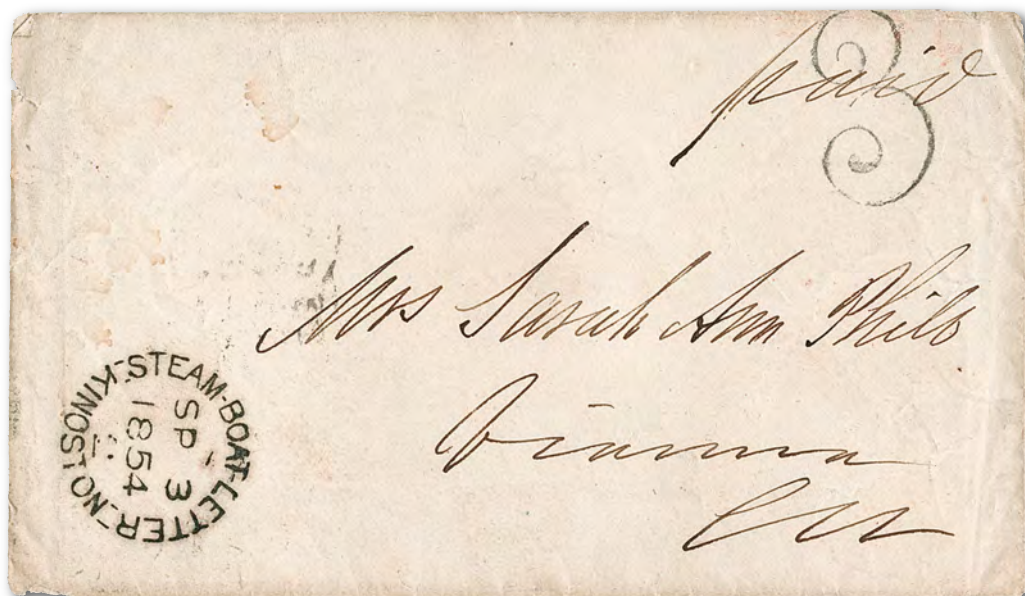 paid
3
Mrs Sarah Ann
Vienna
CW
STEAM-BOAT-LETTER-KINGSTON
SP 3
1854